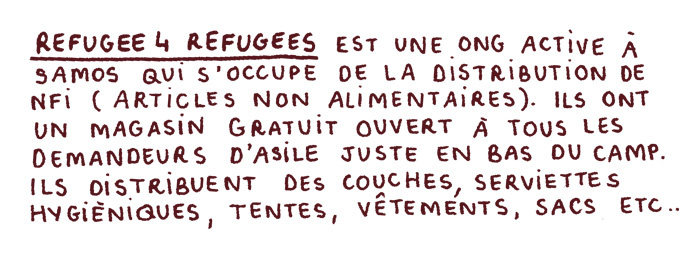 REFUGEE 4 REFUGEES EST UNE ONG ACTIVE À
SAMOS QUI S'OCCUPE DE LA DISTRIBUTION DE
NFI (ARTICLES NON ALIMENTAIRES). ILS ONT
UN MAGASIN GRATUIT OUVERT À TOUS LES
DEMANDEURS D'ASILE JUSTE EN BAS DU CAMP.
ILS DISTRIBUENT DES COUCHES, SERVIETTES
HYGIÈNIQUES, TENTES, VÊTEMENTS, SACS ETC..